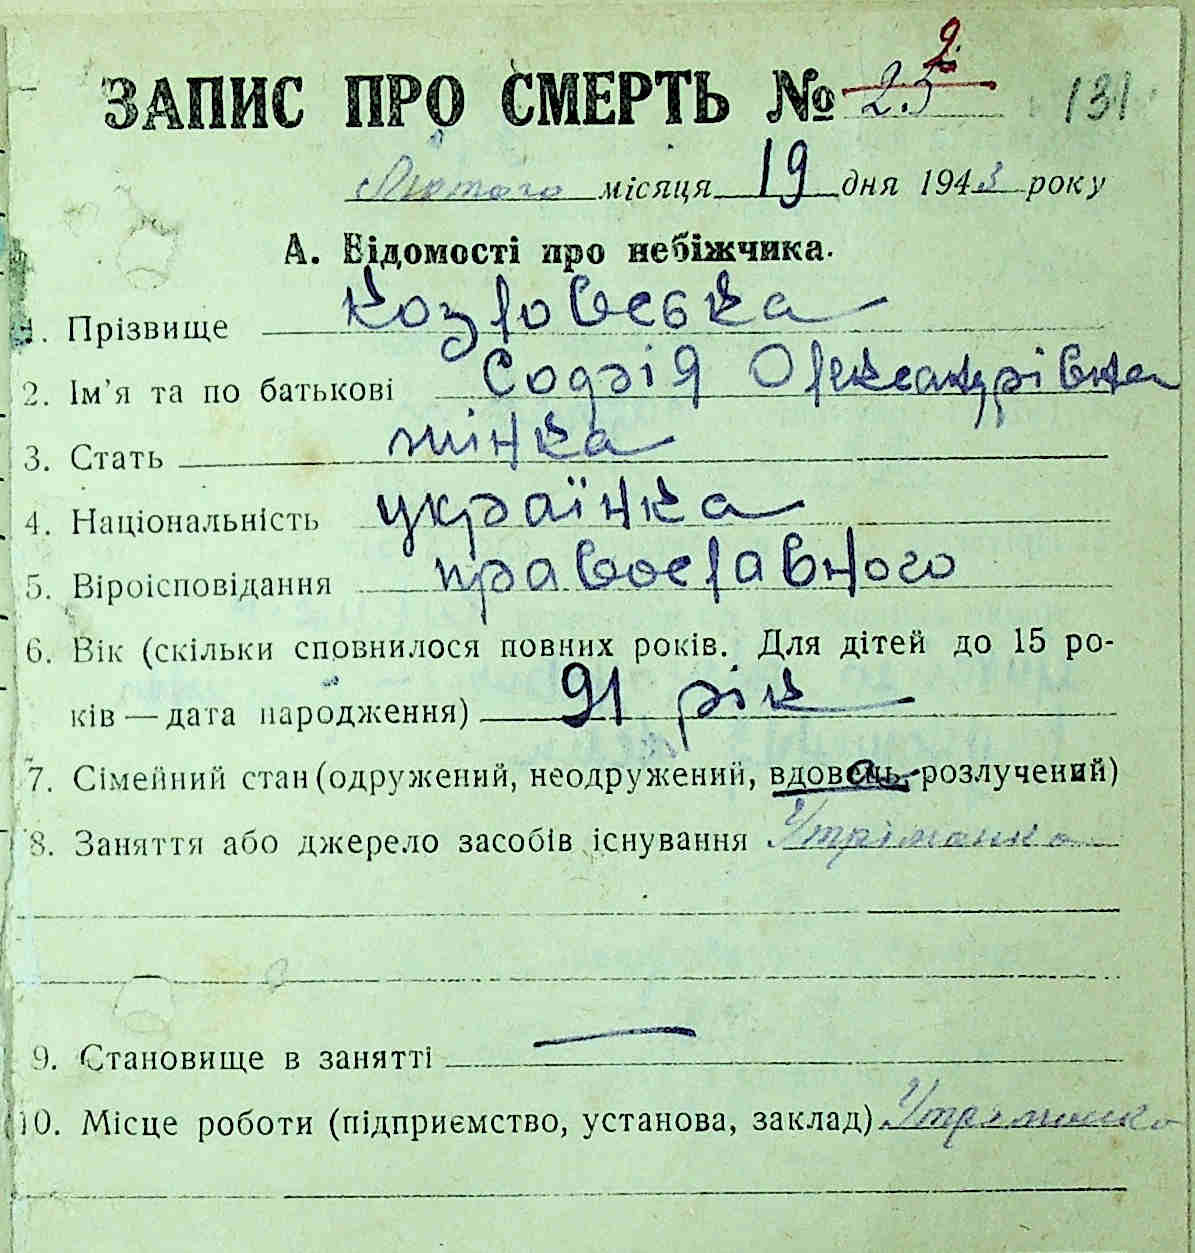 ЗАПИС ПРО СМЕРТЬ № 25 2 131
Лютого місяця 19 дня 1943 року
А. Відомості про небіжчика.
1. Прізвище Козловська
2. Ім'я та по батькові Софія Олександрівна
3. Стать жінка
4. Національність українка
5. Віроісповідання православного
6. Вік (скільки сповнилося повних років. Для дітей до 15 ро-
ків — дата народження) 91 рік
7. Сімейний стан (одружений, неодружений, вдова, розлучений)
8. Заняття або джерело засобів існування Утріманка
9. Становище в занятті —
10. Місце роботи (підприємство, установа, заклад) Утриманка